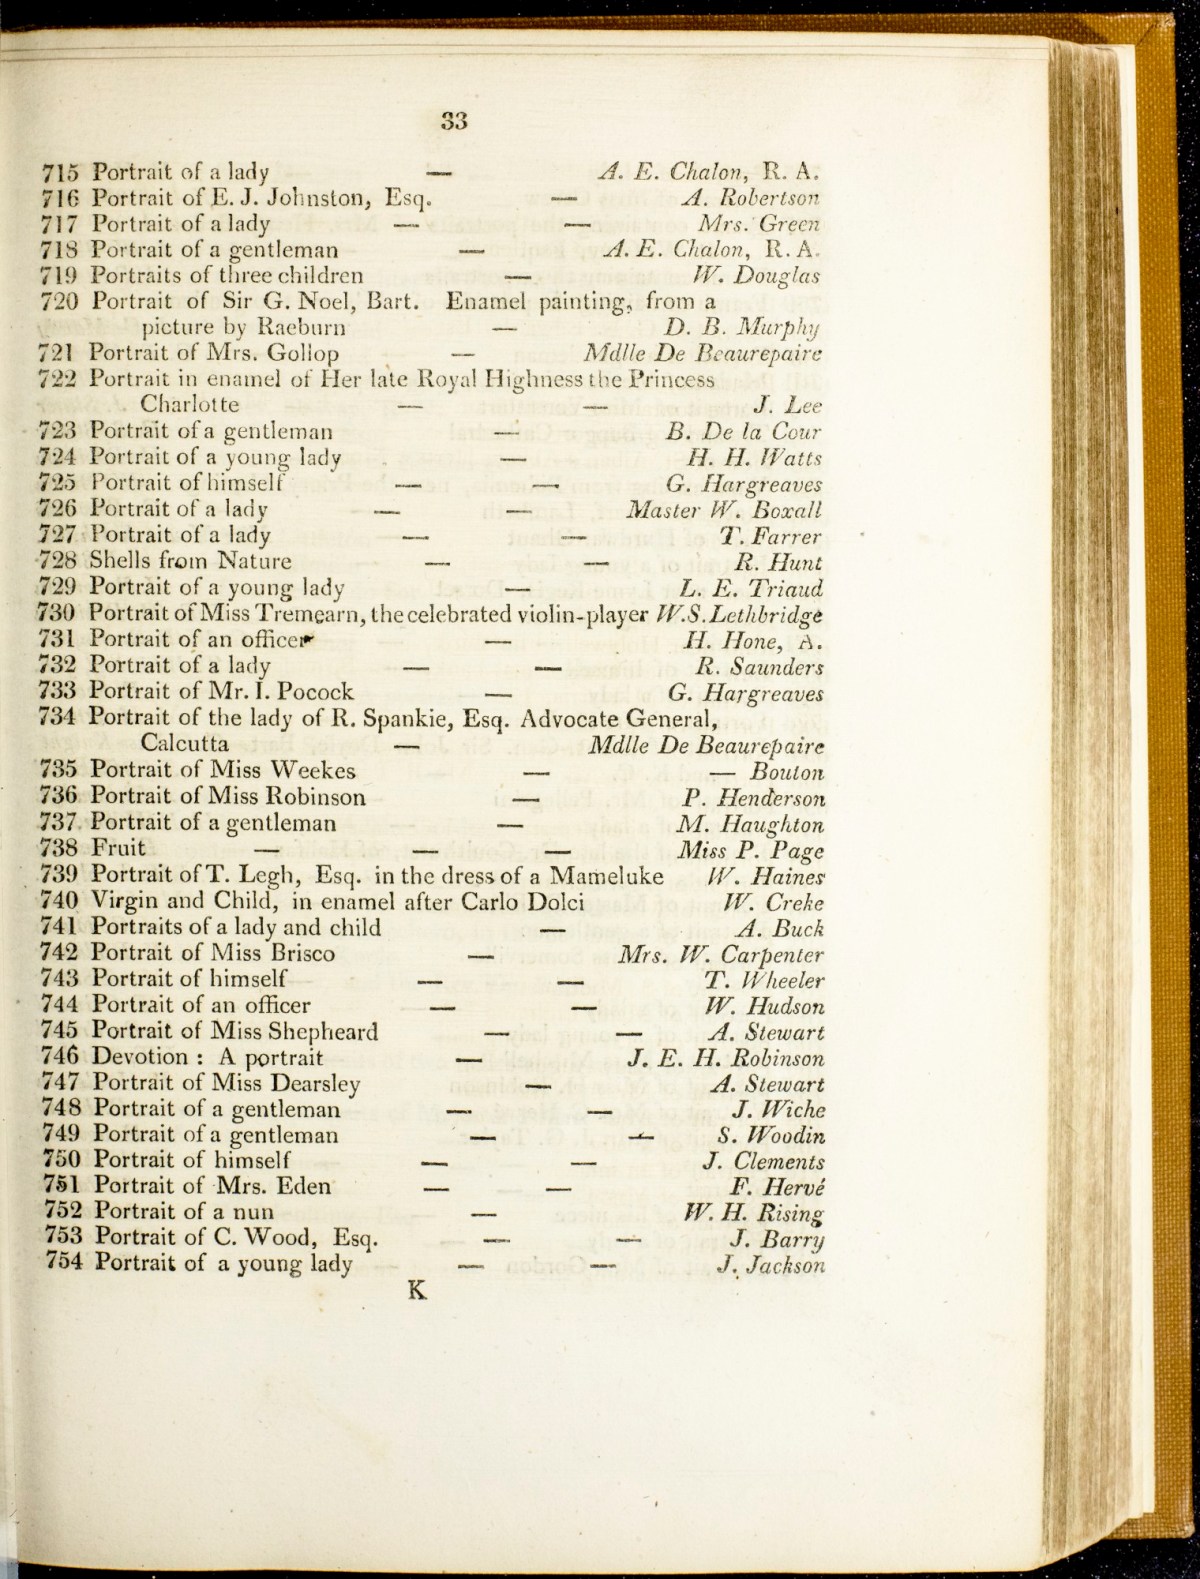 33
715 Portrait of a lady — A. E. Chalon, R. A.
716 Portrait of E. J. Johnston, Esq. — A. Robertson
717 Portrait of a lady — — Mrs. Green
718 Portrait of a gentleman — A. E. Chalon, R. A.
719 Portraits of three children — W. Douglas
720 Portrait of Sir G. Noel, Bart. Enamel painting, from a
picture by Raeburn — D. B. Murphy
721 Portrait of Mrs. Gollop — Mdlle De Beaurepaire
722 Portrait in enamel of Her late Royal Highness the Princess
Charlotte — — J. Lee
723 Portrait of a gentleman — B. De la Cour
724 Portrait of a young lady — H. H. Watts
725 Portrait of himself — — G. Hargreaves
726 Portrait of a lady — — Master W. Boxall
727 Portrait of a lady — — T. Farrer
728 Shells from Nature — — R. Hunt
729 Portrait of a young lady — L. E. Triaud
730 Portrait of Miss Tremearn, the celebrated violin-player W.S. Lethbridge
731 Portrait of an officer — H. Hone, A.
732 Portrait of a lady — — R. Saunders
733 Portrait of Mr. I. Pocock — G. Hargreaves
734 Portrait of the lady of R. Spankie, Esq. Advocate General,
Calcutta — Mdlle De Beaurepaire
735 Portrait of Miss Weekes — — Bouton
736 Portrait of Miss Robinson — P. Henderson
737 Portrait of a gentleman — M. Haughton
738 Fruit — — — Miss P. Page
739 Portrait of T. Legh, Esq. in the dress of a Mameluke W. Haines
740 Virgin and Child, in enamel after Carlo Dolci W. Creke
741 Portraits of a lady and child — A. Buck
742 Portrait of Miss Brisco — Mrs. W. Carpenter
743 Portrait of himself — — T. Wheeler
744 Portrait of an officer — — W. Hudson
745 Portrait of Miss Shepheard — — A. Stewart
746 Devotion : A portrait — J. E. H. Robinson
747 Portrait of Miss Dearsley — A. Stewart
748 Portrait of a gentleman — — J. Wiche
749 Portrait of a gentleman — — S. Woodin
750 Portrait of himself — — J. Clements
751 Portrait of Mrs. Eden — — F. Hervé
752 Portrait of a nun — W. H. Rising
753 Portrait of C. Wood, Esq. — — J. Barry
754 Portrait of a young lady — — J. Jackson
K